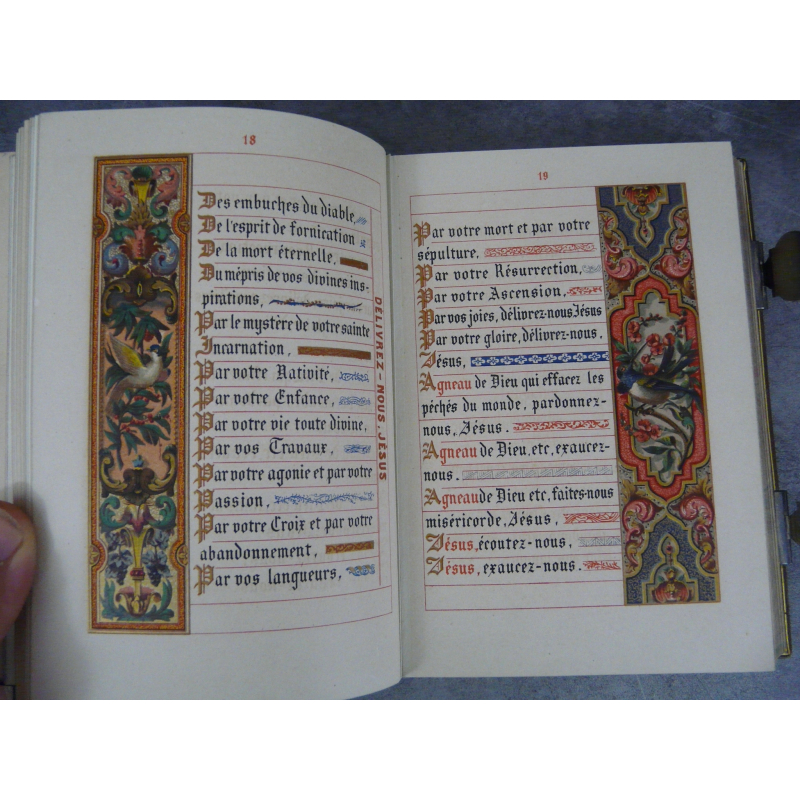 18
Des embuches du diable,
De l'esprit de fornication
De la mort éternelle,
Du mépris de vos divines ins-
pirations,
Par le mystère de votre sainte
Incarnation,
Par votre Nativité,
Par votre Enfance,
Par votre vie toute divine,
Par vos Travaux,
Par votre agonie et par votre
Passion,
Par votre Croix et par votre
abandonnement,
Par vos langueurs,
DÉLIVREZ-NOUS, JÉSUS
19
Par votre mort et par votre
sépulture,
Par votre Résurrection,
Par votre Ascension,
Par vos joies, délivrez-nous Jésus
Par votre gloire, délivrez-nous.
Jésus,
Agneau de Dieu qui effacez les
péchés du monde, pardonnez-
nous, Jésus.
Agneau de Dieu, etc, exaucez-
nous.
Agneau de Dieu etc, faites-nous
miséricorde, Jésus,
Jésus, écoutez-nous,
Jésus, exaucez-nous.